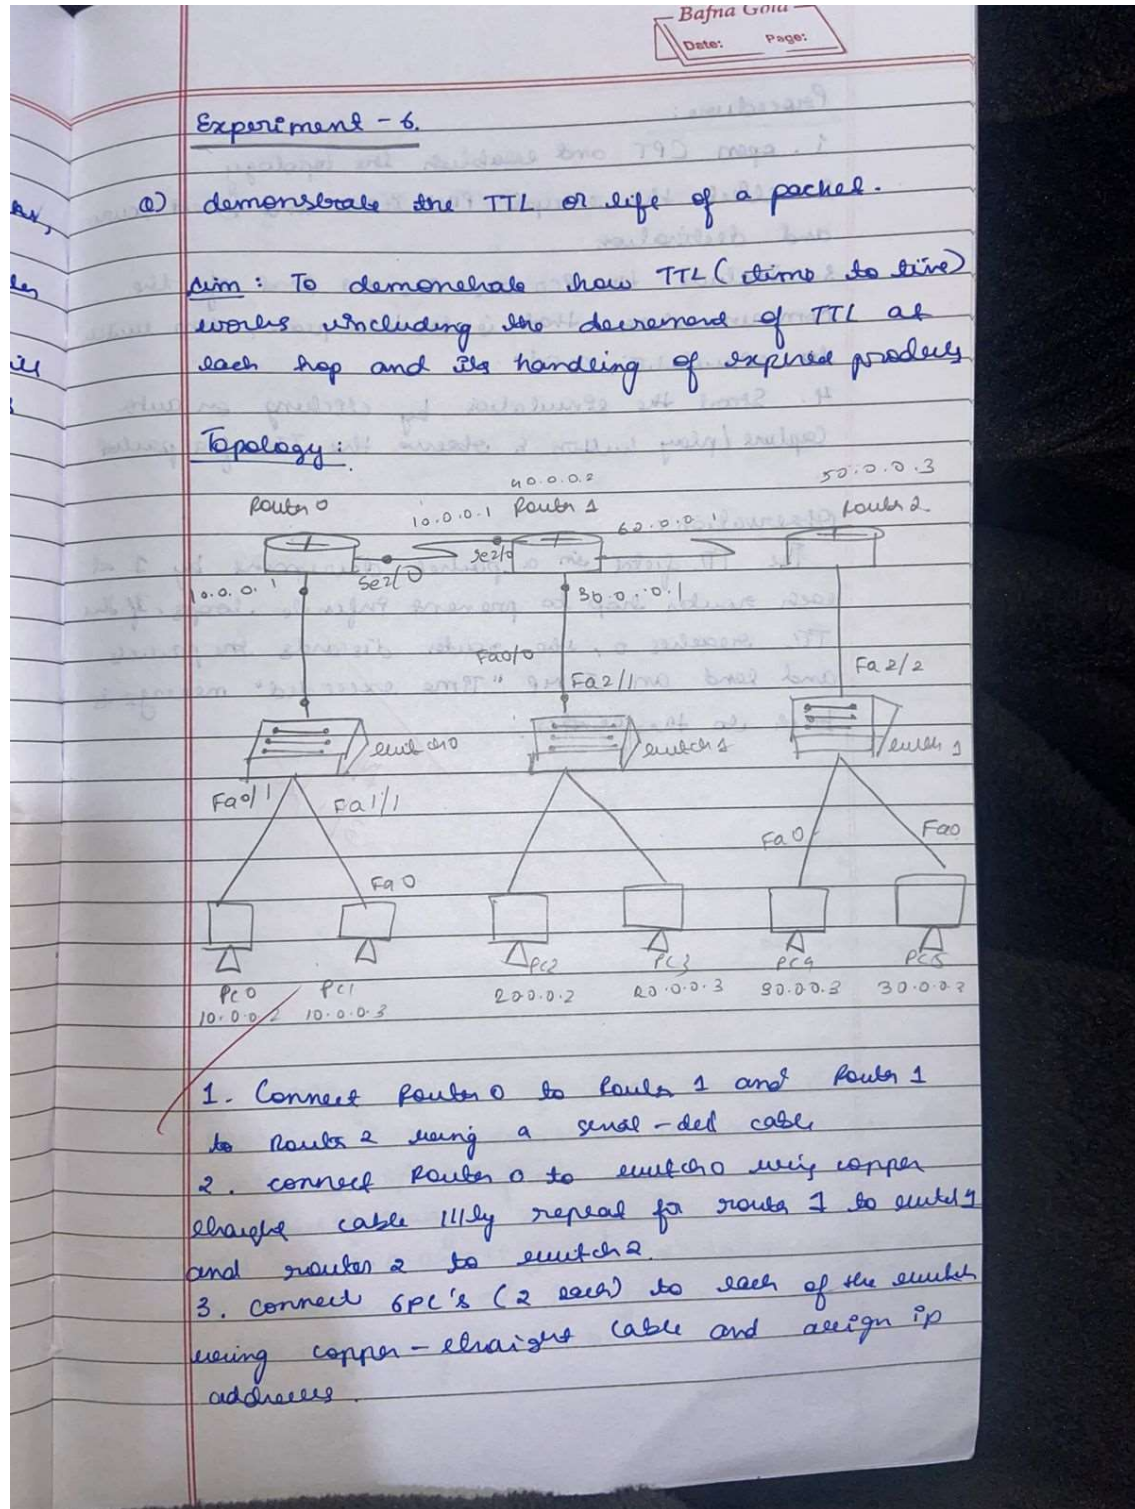 Bafna Gold
Date: Page:
Experiment - 6.
Q) demonstrate the TTL or life of a packet.
Aim : To demonstrate how TTL (time to live)
works including the decrement of TTL at
each hop and its handling of expired
Topology :
40.0.0.2 50.0.0.3
Router 0 10.0.0.1 Router 1 Router 2
Se2/0 Se2/0
10.0.0.1 30.0.0.1
Fa0/0 Fa2/1 Fa2/2
switch0 switch 1 switch 1
Fa0/1 Fa1/1
Fa0 Fa0
Fa0
PC2 PC3 PC4 PC5
PC0 PC1 20.0.0.2 20.0.0.3 30.0.0.3
10.0.0.2 10.0.0.3
1. Connect Router 0 to Router 1 and Router 1
to Router 2 using a cable
2. connect Router 0 to switch0 copper
cable lllly repeat for router 1 to
and router 2 to switch2.
3. Connect 6PC's (2 each) to each of the switch
using copper - straight cable and assign ip
addresses.